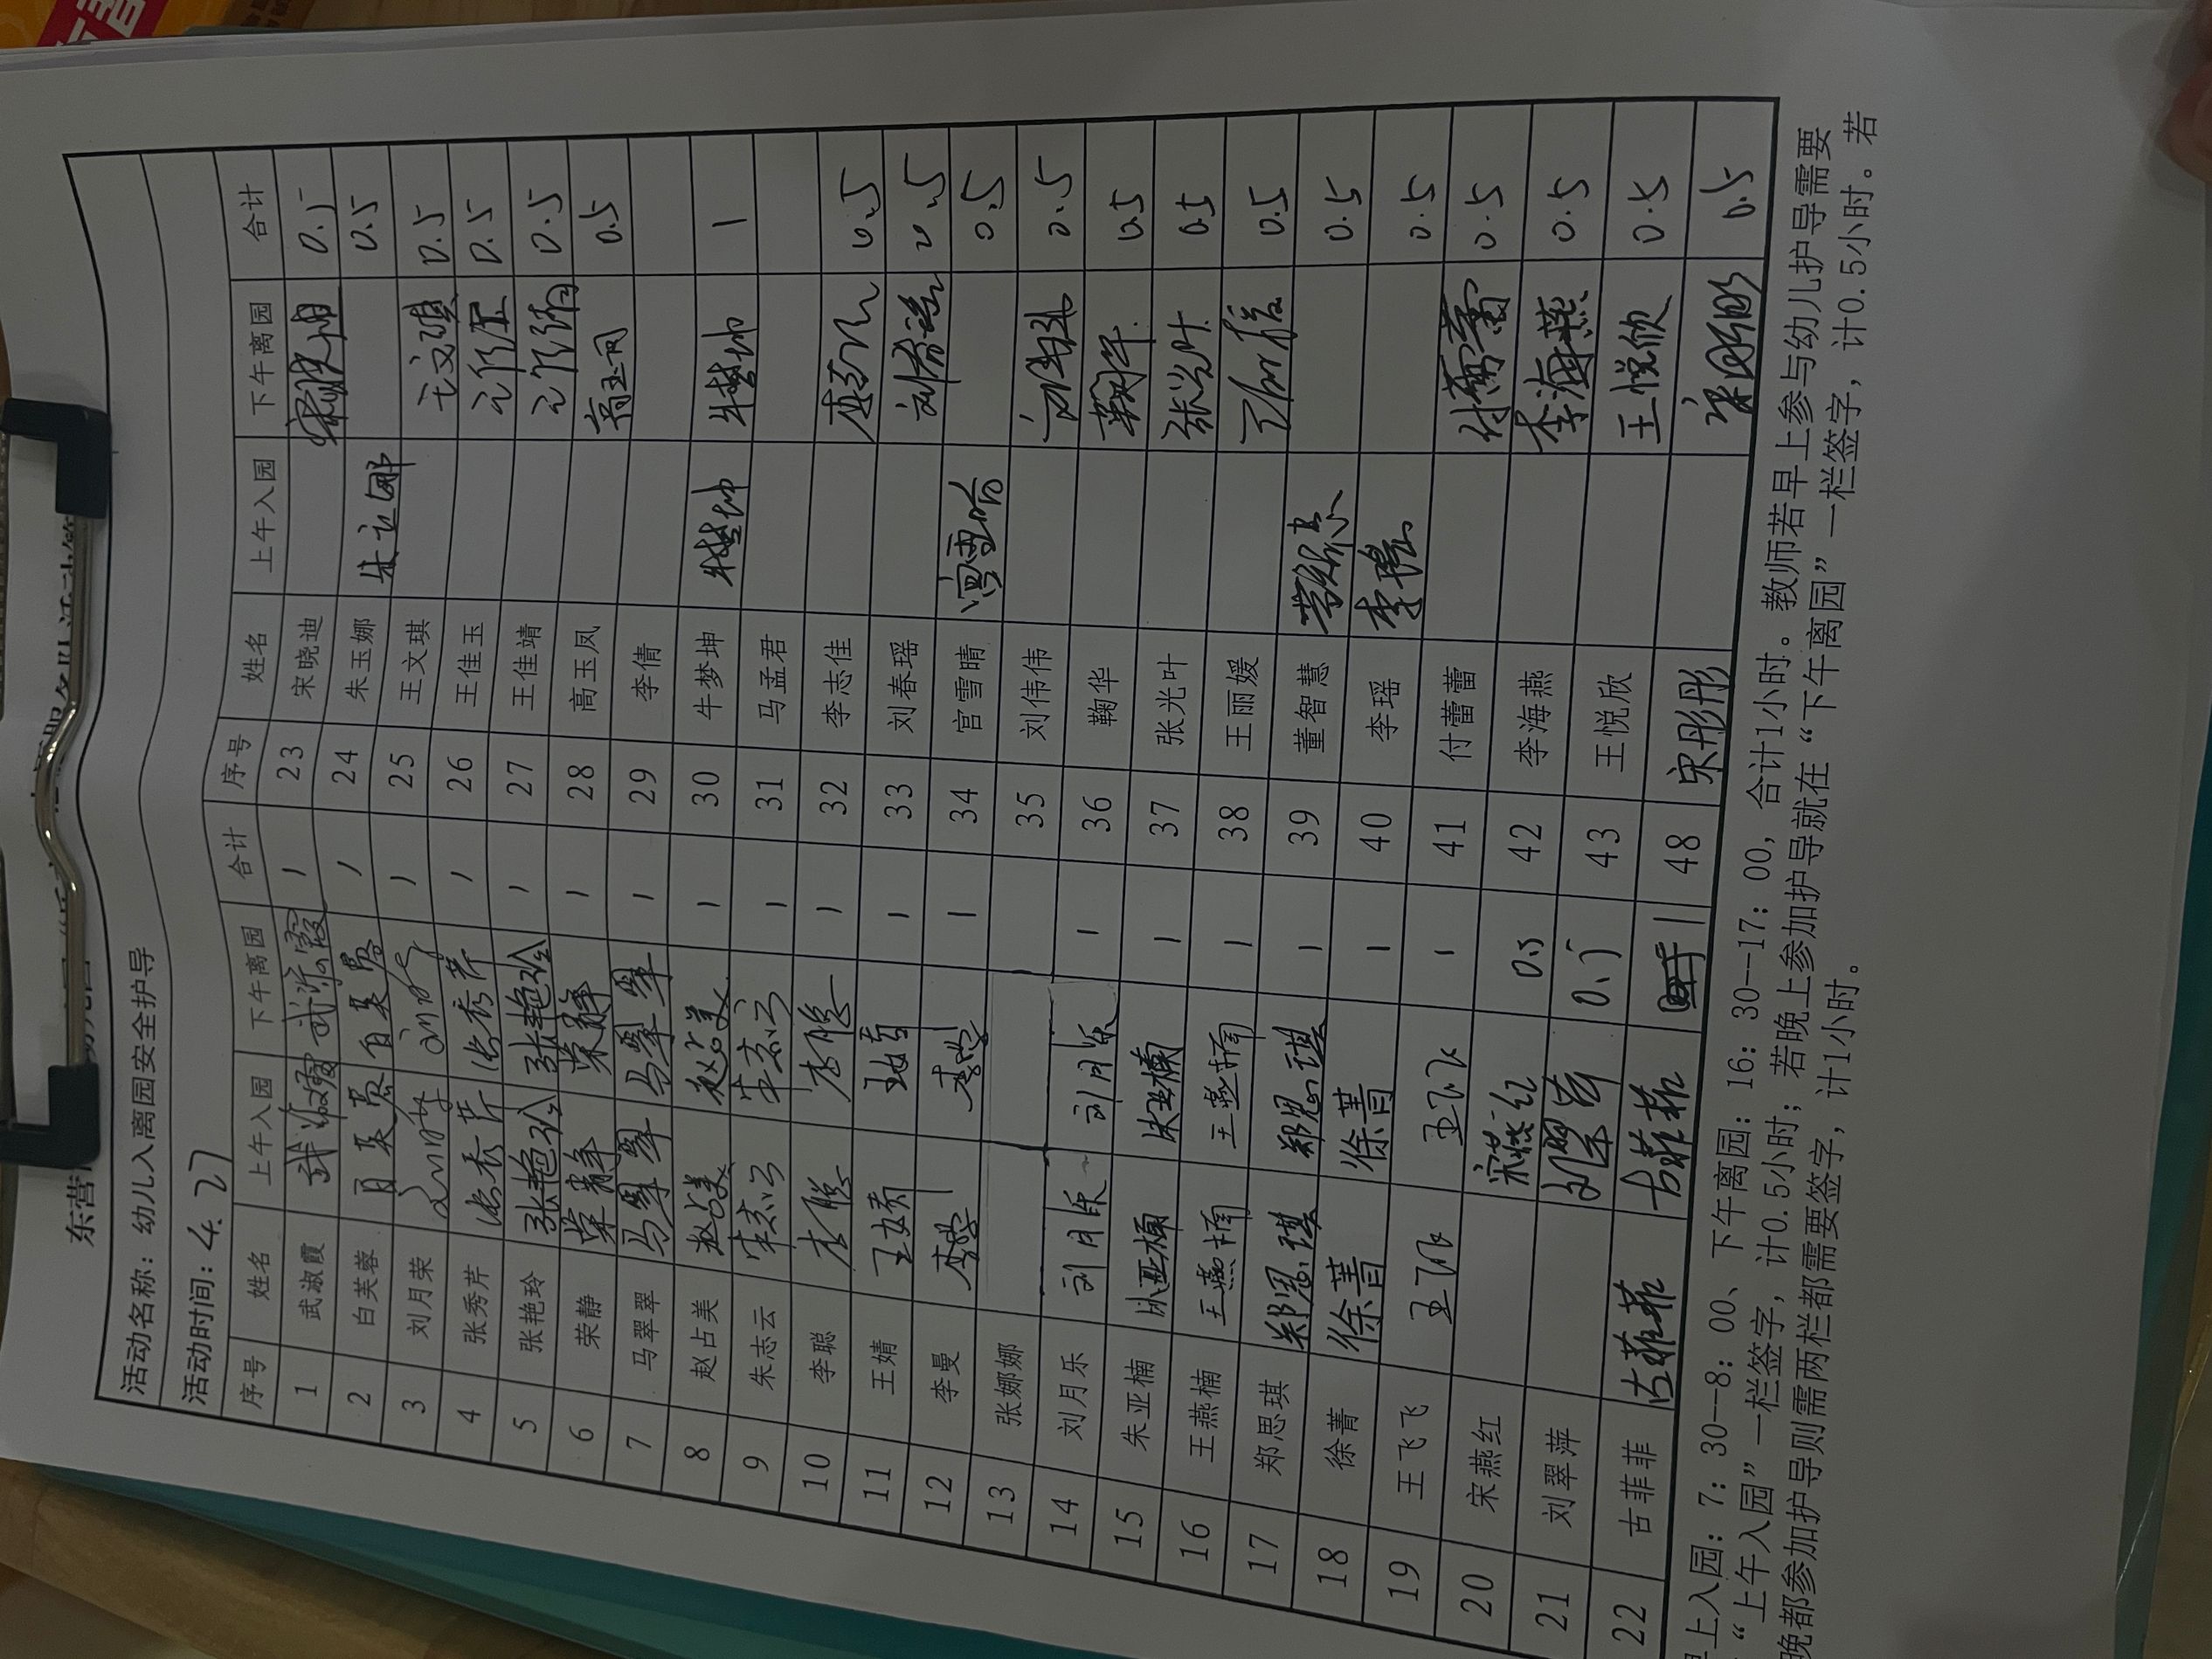 活动名称：幼儿入离园安全护导
活动时间：4.27
序号 姓名 上午入园 下午离园 合计 序号 姓名 上午入园 下午离园 合计
1 武淑霞 武淑霞 武淑霞 1 23 宋晓迪 宋晓迪 0.5
2 白芙蓉 白芙蓉 白芙蓉 1 24 朱玉娜 朱玉娜 0.5
3 刘月荣 1 25 王文琪 王文琪 0.5
4 张秀芹 张秀芹 张秀芹 1 26 王佳玉 王佳玉 0.5
5 张艳玲 张艳玲 张艳玲 1 27 王佳靖 王佳靖 0.5
6 荣静 荣静 荣静 1 28 高玉凤 高玉凤 0.5
7 马翠翠 马翠翠 马翠翠 1 29 李倩
8 赵占美 赵占美 赵占美 1 30 牛梦坤 牛梦坤 牛梦坤 1
9 朱志云 朱志云 朱志云 1 31 马孟君
10 李聪 李聪 李聪 1 32 李志佳 0.5
11 王婧 王婧 王婧 1 33 刘春瑶 刘春瑶 0.5
12 李曼 李曼 李曼 1 34 宫雪晴 宫雪晴 0.5
13 张娜娜 35 刘伟伟 刘伟伟 0.5
14 刘月乐 刘月乐 刘月乐 1 36 鞠华 鞠华 0.5
15 朱亚楠 朱亚楠 朱亚楠 1 37 张光叶 张光叶 0.5
16 王燕楠 王燕楠 王燕楠 1 38 王丽媛 王丽媛 0.5
17 郑思琪 郑思琪 郑思琪 1 39 董智慧 董智慧 0.5
18 徐菁 徐菁 徐菁 1 40 李瑶 李瑶 0.5
19 王飞飞 王飞飞 王飞飞 1 41 付蕾蕾 付蕾蕾 0.5
20 宋燕红 宋燕红 0.5 42 李海燕 李海燕 0.5
21 刘翠萍 刘翠萍 0.5 43 王悦欣 王悦欣 0.5
22 古菲菲 古菲菲 古菲菲 1 48 宋彤彤 宋彤彤 0.5
早上入园：7：30--8：00、下午离园：16：30--17：00，合计1小时。教师若早上参与幼儿护导需要
“上午入园”一栏签字，计0.5小时；若晚上参加护导就在“下午离园”一栏签字，计0.5小时。若
晚都参加护导则需两栏都需要签字，计1小时。